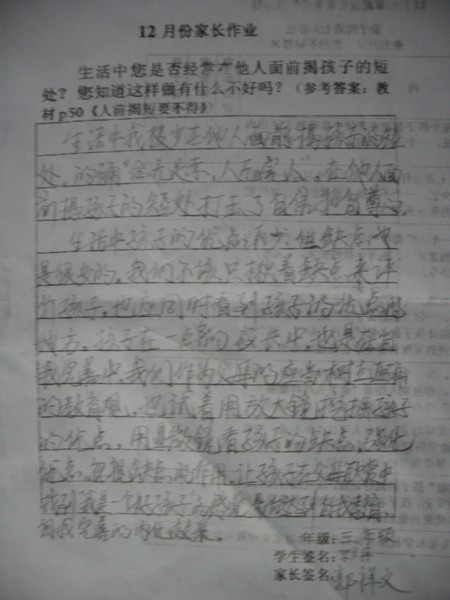 12月份家长作业
生活中您是否经常在他人面前揭孩子的短
处？您知道这样做有什么不好吗？（参考答案：教
材p50《人前揭短要不得》）
生活中我极少在他人面前揭孩子的短
处，的确“金无足赤，人无完人”。在他人面
前揭孩子的短处打击了自信和自尊心。
生活中孩子的优点不少，但缺点也
是很多的，我们不该只盯着缺点来评
价孩子，也应同时看到孩子的优点的
地方。孩子在一点点的成长中，也是在自
我完善中，我们作为父母的应当树立正确
的教育观，也试着用放大镜
的优点，用 镜看孩子的缺点，强化
优点，忽视缺点的作用，让孩子在父母 中
找到“我是一个好孩子”的感觉
自我完善的 效果。
年级：三年级
学生签名：
家长签名：郭祥文